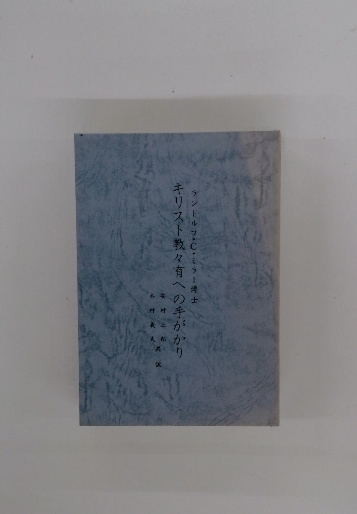 ランドルフ・C・ミラー博士
キリスト教々育への手がかり
村 共訳
木村